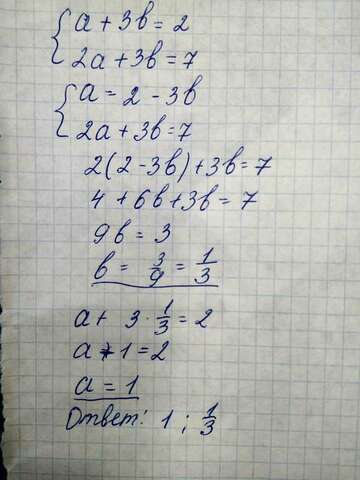 a + 3b = 2
2a + 3b = 7
a = 2 - 3b
2a + 3b = 7
2(2 - 3b) + 3b = 7
4 + 6b + 3b = 7
9b = 3
b = 3/9 = 1/3
a + 3 · 1/3 = 2
a + 1 = 2
a = 1
Ответ: 1 ; 1/3